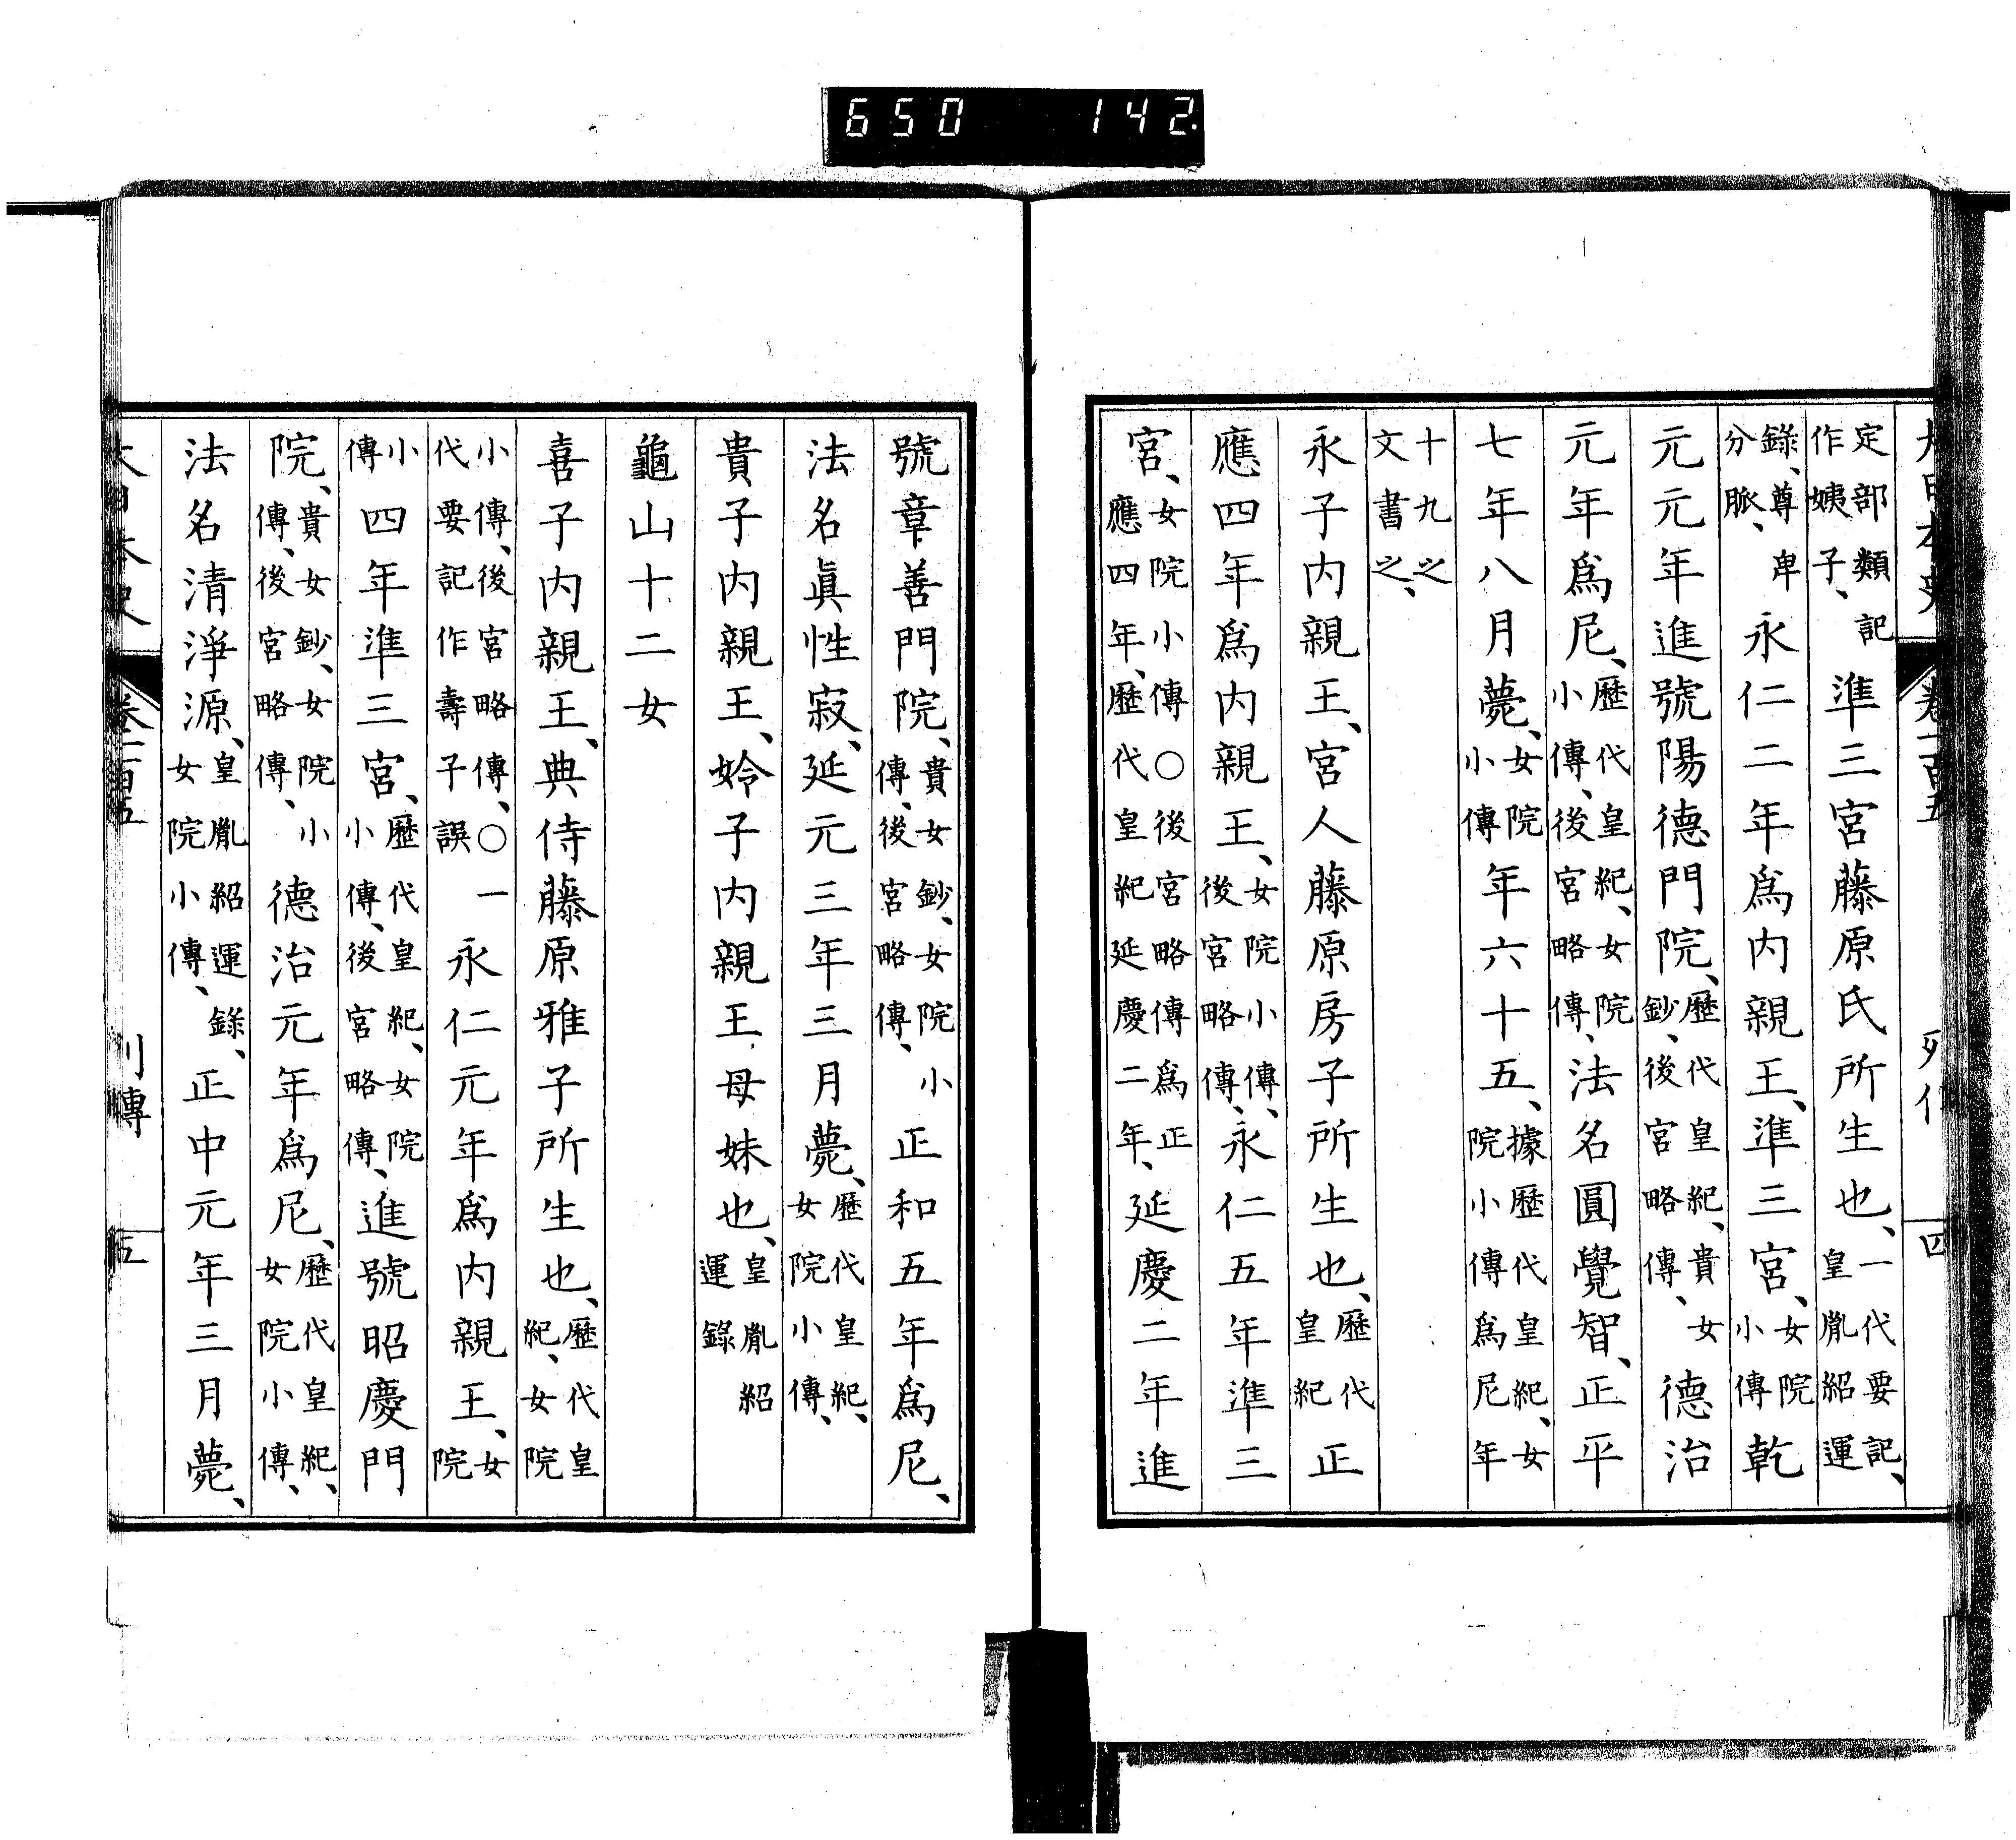 650 142
大日本史 卷一百五 列傳 四
定部類記作姨子、準三宮藤原氏所生也、一代要記、皇胤紹運
錄、尊卑分脈、永仁二年爲内親王、準三宮、女院小傳乾
元元年進號陽德門院、歷代皇紀、貴女鈔、後宮略傳、德治
元年爲尼、歷代皇紀、女院小傳、後宮略傳、法名圓覺智、正平
七年八月薨、女院小傳年六十五、據歷代皇紀、女院小傳爲尼年
十九之文書之、
永子内親王、宮人藤原房子所生也、歷代皇紀正
應四年爲内親王、女院小傳、後宮略傳、永仁五年準三
宮、女院小傳○後宮略傳爲正應四年、歷代皇紀延慶二年、延慶二年進
號章善門院、貴女鈔、女院小傳、後宮略傳、正和五年爲尼、
法名眞性寂、延元三年三月薨、歷代皇紀、女院小傳、
貴子内親王、姈子内親王母妹也、皇胤紹運錄
龜山十二女
喜子内親王、典侍藤原雅子所生也、歷代皇紀、女院
小傳、後宮略傳、○一代要記作壽子誤永仁元年爲内親王、女院
小傳四年準三宮、歷代皇紀、女院小傳、後宮略傳、進號昭慶門
院、貴女鈔、女院小傳、後宮略傳、德治元年爲尼、歷代皇紀、女院小傳、
法名清淨源、皇胤紹運錄、女院小傳、正中元年三月薨、
大日本史 卷一百五 列傳 五